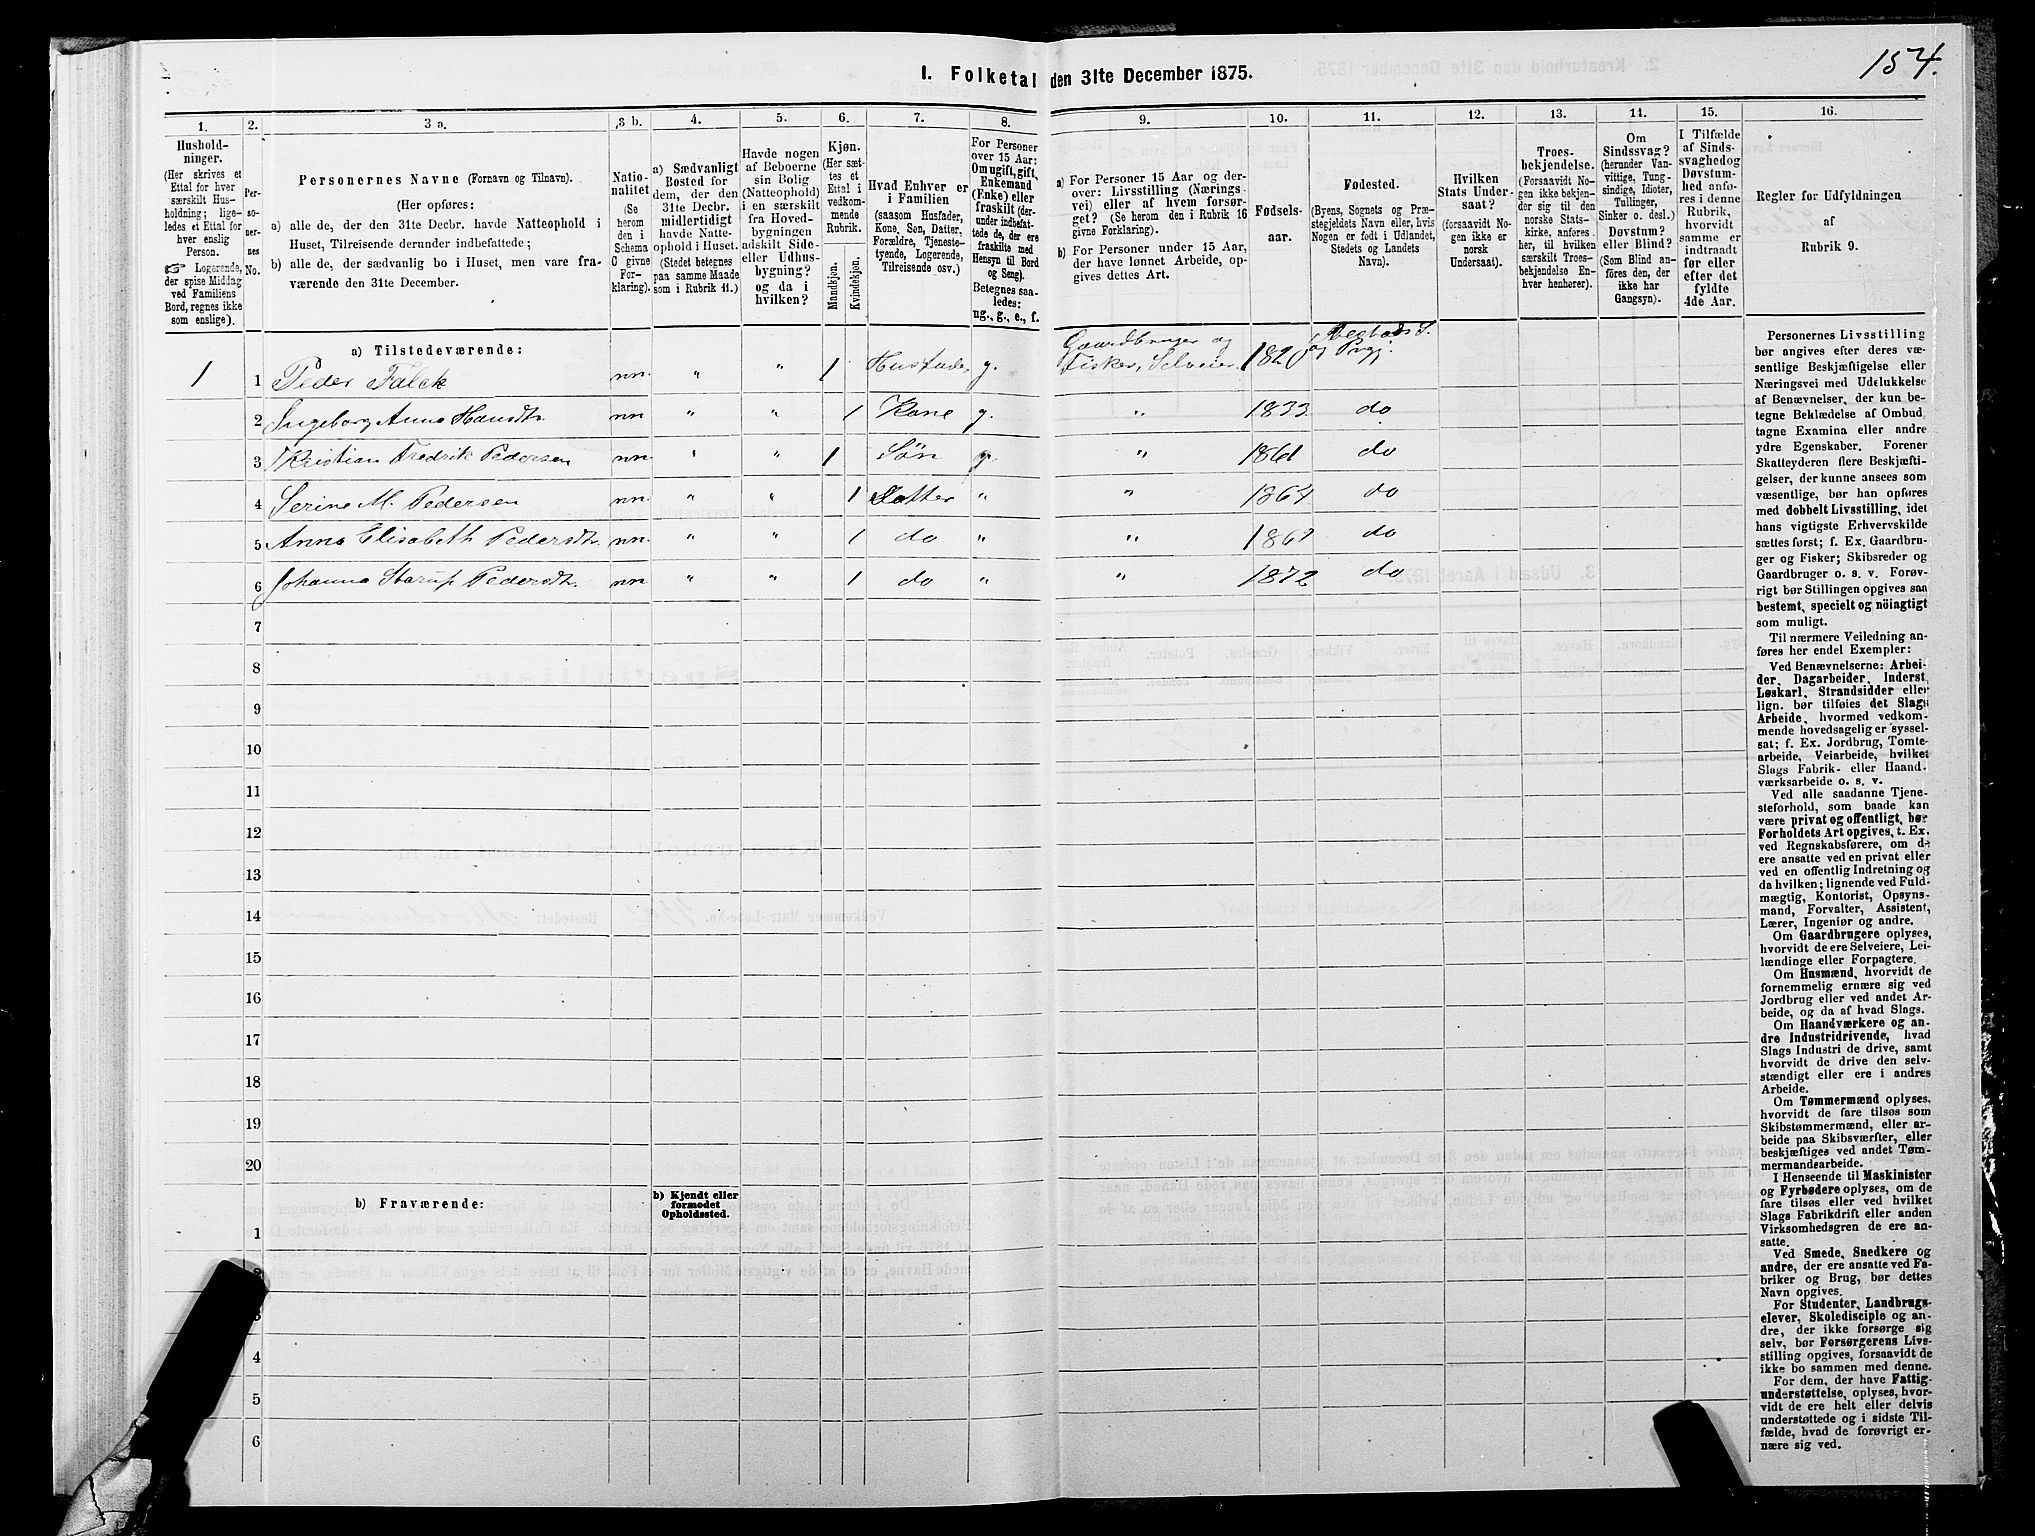 154.
I. Folketal den 31te December 1875.
1.
Hushold-
ninger.
(Her skrives et
Ettal for hver
særskilt Hus-
holdning; lige-
ledes et Ettal for
hver enslig
Person.
☞ Logerende,
der spise Middag
ved Familiens
Bord, regnes ikke
som enslige).
2.
Per-
so-
ner-
nes
No.
3 a.
Personernes Navne (Fornavn og Tilnavn).
(Her opføres:
a) alle de, der den 31te Decbr. havde Natteophold i
Huset, Tilreisende derunder indbefattede;
b) alle de, der sædvanlig bo i Huset, men vare fra-
værende den 31te December.
3 b.
Natio-
nalitet
(Se
herom
den i
Schema
C givne
For-
klaring).
4.
a) Sædvanligt
Bosted for
dem, der den
31te Decbr.
midlertidigt
havde Natte-
ophold i Huset.
(Stedet betegnes
paa samme Maade
som i Rubrik 11.)
5.
Havde nogen
af Beboerne
sin Bolig
(Natteophold)
i en særskilt
fra Hoved-
bygningen
adskilt Side-
eller Udhus-
bygning?
og da i
hvilken?
6.
Kjøn.
(Her sæt-
tes et
Ettal i
vedkom-
mende
Rubrik.
Mandkjøn.
Kvindekjøn.
7.
Hvad Enhver er
i Familien
(saasom Husfader,
Kone, Søn, Datter,
Forældre, Tjeneste-
tyende, Logerende,
Tilreisende osv.)
8.
For Personer
over 15 Aar:
Om ugift, gift,
Enkemand
(Enke) eller
fraskilt (der-
under indbefat-
tede de, der ere
fraskilte med
Hensyn til Bord
og Seng).
Betegnes saa-
ledes:
ug., g., e., f.
9.
a) For Personer 15 Aar og der-
over: Livsstilling (Nærings-
vei) eller af hvem forsør-
get? (Se herom den i Rubrik 16
givne Forklaring).
b) For Personer under 15 Aar,
der have lønnet Arbeide, op-
gives dettes Art.
10.
Fødsels-
aar.
11.
Fødested.
(Byens, Sognets og Præ-
stegjeldets Navn eller, hvis
Nogen er født i Udlandet,
Stedets og Landets
Navn).
12.
Hvilken
Stats Under-
saat?
(forsaavidt No-
gen ikke er
norsk
Undersaat).
13.
Troes-
bekjendelse.
(Forsaavidt No-
gen ikke bekjen-
der sig til den
norske Stats-
kirke, anføres
her, til hvilken
særskilt Troes-
bekjendelse En-
hver henhører).
14.
Om
Sindssvag?
(herunder Van-
vittige, Tung-
sindige, Idioter,
Tullinger,
Sinker o. desl.)
Døvstum?
eller Blind?
(Som Blind an-
føres den, der
ikke har
Gangsyn).
15.
I Tilfælde
af Sinds-
svaghedog
Døvstum-
hed anfø-
res i denne
Rubrik,
hvorvidt
samme er
indtraadt
før eller
efter det
fyldte
4de Aar.
16.
Regler for Udfyldningen
af
Rubrik 9.
a) Tilstedeværende:
1 1 Peder Falck nn. " " 1 Husfader g. Gaardbruger og Fisker, Selveier. 1820
2 Ingeborg Anna nn " " 1 Kone g. " 1833 do
3 Kristian Fredrik Pedersen nn. " " 1 Søn g. " 1861 do
4 Serine M. Pedersen nn. " " 1 Datter " " 1864 do
5 Anna Elisabeth Pedersdt. nn. " " 1 do " " 1867 do
6 Johanna Starup Pedersdt. nn " " 1 do " " 1872 do
7
8
9
10
11
12
13
14
15
16
17
18
19
20
b) Fraværende:
b) Kjendt eller
formodet
Opholdssted.
1
4
5
6
Personernes Livsstilling
bør angives efter deres væ-
sentlige Beskjæftigelse eller
Næringsvei med Udelukkelse
af Benævnelser, der kun be-
tegne Beklædelse af Ombud,
tagne Examina eller andre
ydre Egenskaber. Forener
Skatteyderen flere Beskjæfti-
gelser, der kunne ansees som
væsentlige, bør han opføres
med dobbelt Livsstilling, idet
hans vigtigste Erhvervskilde
sættes først; f. Ex. Gaardbru-
ger og Fisker; Skibsreder og
Gaardbruger o. s. v. Forøv-
rigt bør Stillingen opgives saa
bestemt, specielt og nöiagtigt
som muligt.
Til nærmere Veiledning an-
føres her endel Exempler:
Ved Benævnelserne: Arbei-
der, Dagarbeider, Inderst,
Løskarl, Strandsidder eller
lign. bør tilføies det Slags
Arbeide, hvormed vedkom-
mende hovedsagelig er syssel-
sat; f. Ex. Jordbrug, Tomte-
arbeide, Veiarbeide, hvilket
Slags Fabrik- eller Haand-
værksarbeide o. s. v.
Ved alle saadanne Tjene-
steforhold, som baade kan
være privat og offentligt, bør
Forholdets Art opgives, t. Ex.
ved Regnskabsførere, om de
ere ansatte ved en privat eller
ved en offentlig Indretning og
da hvilken; lignende ved Fuld-
mægtig, Kontorist, Opsyns-
mand, Forvalter, Assistent,
Lærer, Ingeniør og andre.
Om Gaardbrugere oplyses,
hvorvidt de ere Selveiere, Lei-
lændinge eller Forpagtere.
Om Husmænd, hvorvidt de
fornemmelig ernære sig ved
Jordbrug eller ved andet Ar-
beide, og da af hvad Slags.
Om Haandværkere og an-
dre Industridrivende, hvad
Slags Industri de drive, samt
hvorvidt de drive den selv-
stændigt eller ere i andres
Arbeide.
Om Tømmermænd oplyses,
hvorvidt de fare tilsøs som
Skibstømmermænd, eller ar-
beide paa Skibsværfter, eller
beskjæftiges ved andet Tøm-
mermandsarbeide.
I Henseende til Maskinister
og Fyrbødere oplyses, om de
fare tilsøs eller ved hvilket
Slags Fabrikdrift eller anden
Virksomhedsgren de ere an-
satte.
Ved Smede, Snedkere og
andre, der ere ansatte ved Fa-
briker og Brug, bør dettes
Navn opgives.
For Studenter, Landbrugs-
elever, Skoledisciple og an-
dre, der ikke forsørge sig
selv, bør Forsørgerens Livs-
stilling opgives, forsaavidt de
ikke bo sammen med denne.
For dem, der have Fattig-
understøttelse, oplyses, hvor-
vidt de ere helt eller delvis
understøttede og i sidste Til-
fælde, hvad de forøvrigt er-
nære sig ved.